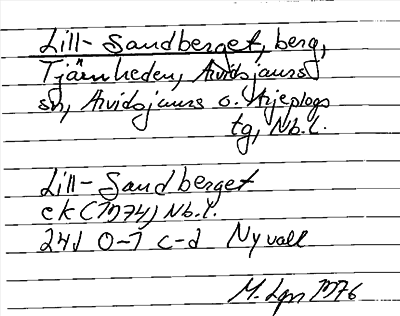 Lill-Sandberget, berg,
Tjärnheden, Arvidsjaurs
sn, Arvidsjaurs o. Arjeplogs
tg, Nb.l.
Lill-Sandberget
ek (1974) Nb.l.
24J 0-1 c-d Nyvall
M. Lgn 1976